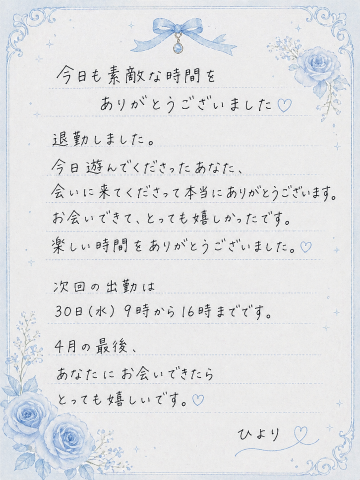 今日も素敵な時間を
ありがとうございました♡
退勤しました。
今日遊んでくださったあなた、
会いに来てくださって本当にありがとうございます。
お会いできて、とっても嬉しかったです。
楽しい時間をありがとうございました。♡
次回の出勤は
30日(水) 9時から16時までです。
4月の最後、
あなたにお会いできたら
とっても嬉しいです。♡
ひより♡